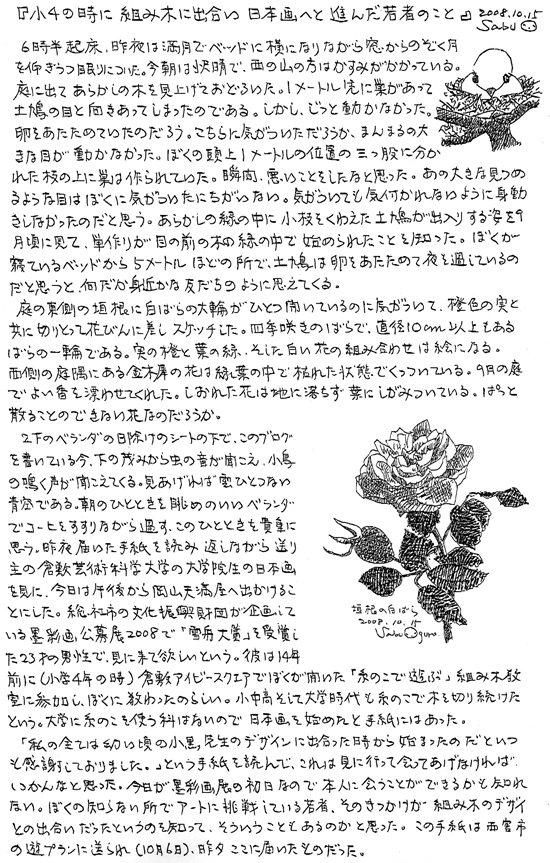 『小4の時に 組み木に出合い 日本画へと進んだ若者のこと』 2008.10.15
Sabu
6時半起床、昨夜は満月でベッドに横になりながら窓からのぞく月
を仰ぎうつ眠りについた。今朝は快晴で、西の山の方はかすみがかかっている。
庭に出て あらかしの木を見上げておどろいた。1メートル先に巣があって
土鳩の目と向きあってしまったのである。しかし、じっと動かなかった。
卵をあたためていたのだろう。こちらに気がついただろうか、まんまるの大
きな目が動かなかった。ぼくの頭上1メートルの位置の三つ股に分か
れた枝の上に巣は作られていた。瞬間、悪いことをしたなと思った。あの大きな見つめ
るような目はぼくに気がついたにちがいない。気がついても気付かれないように身動
きしなかったのだと思う。あらかしの緑の中に小枝をくわえた土鳩が出入りする姿を9
月頃に見て、巣作りが目の前の木の緑の中で始められたことを知った。ぼくが
寝ているベッドから5メートルほどの所で、土鳩は卵をあたためて夜を過しているの
だと思うと、何だか身近かな友だちのように思えてくる。
庭の裏側の垣根に白ばらの大輪がひとつ開いているのに気がついて、橙色の実と
共に切りとって花びんに差しスケッチした。四季咲きのばらで、直径10cm以上もある
ばらの一輪である。実の橙と葉の緑、そして白い花の組み合わせは絵になる。
西側の庭隅にある金木犀の花は緑葉の中で枯れた状態でくっついている。9月の庭
でよい香を漂わせてくれた。しおれた花は地に落ちず葉にしがみついている。ぱらっと
散ることのできない花なのだろうか。
2下のベランダの日除けのシートの下で、このブログ
を書いている今、下の茂みから虫の音が聞こえ、小鳥
の鳴く声が聞こえてくる。見あげれば雲ひとつない
青空である。朝のひとときを眺めのいいベランダ
でコーヒをすすりながら過す、このひとときを貴重に
思う。昨夜届いた手紙を読み返しながら送り
主の倉敷芸術科学大学の大学院生の日本画
を見に、今日は午後から岡山天満屋へ出かけるこ
とにした。総社市の文化振興財団が企画して
いる墨彩画公募展2008で「雪舟大賞」を受賞し
た23才の男性で、見に来て欲しいという。彼は14年
前に(小学4年の時)倉敷アイビースクエアでぼくが開いた「糸のこで遊ぶ」組み木教
室に参加し、ぼくに教わったのらしい。小中高そして大学時代も糸のこで木を切り続けた
という。大学に糸のこを使う科はないので日本画を始めたと手紙にはあった。
「私の全ては幼い頃の小黒先生のデザインに出合った時から始まったのだといつ
も感謝しておりました。」という手紙を読んで、これは見に行って会ってあげなければ、
いかんなと思った。今日が墨彩画展の初日なので本人に会うことができるかも知れ
ない。ぼくの知らない所でアートに挑戦している若者、そのきっかけが組み木のデザイ
ンとの出合いだったというのを知って、そういうこともあるのかと思った。この手紙は西宮市
の遊プランに送られ(10月6日)、昨夕ここに届いたものだった。
垣根の白ばら
2008.10.15
Sabu Oguro